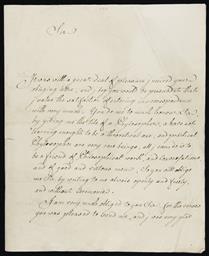 Sir
It was with a great deal of pleasure I received your
obliging letter, and, I beg you would be persuaded that
I value the satisfaction of entering in correspondence
with very much. You do me to much honour, Sir
by giving me the title of a Philosopher, I have not
learning enought to be a theoretical one, and practical
Philosophers are very rare beings, all I can do is to
be a friend of Philosophical work, and conversations,
and of good and virtuous men; So you will oblige
me Sir, by writing to me always openly and freely,
and without Ceremonie.
I am very much obliged to you Sir, for the verses
you was pleased to send me, and I are very glad